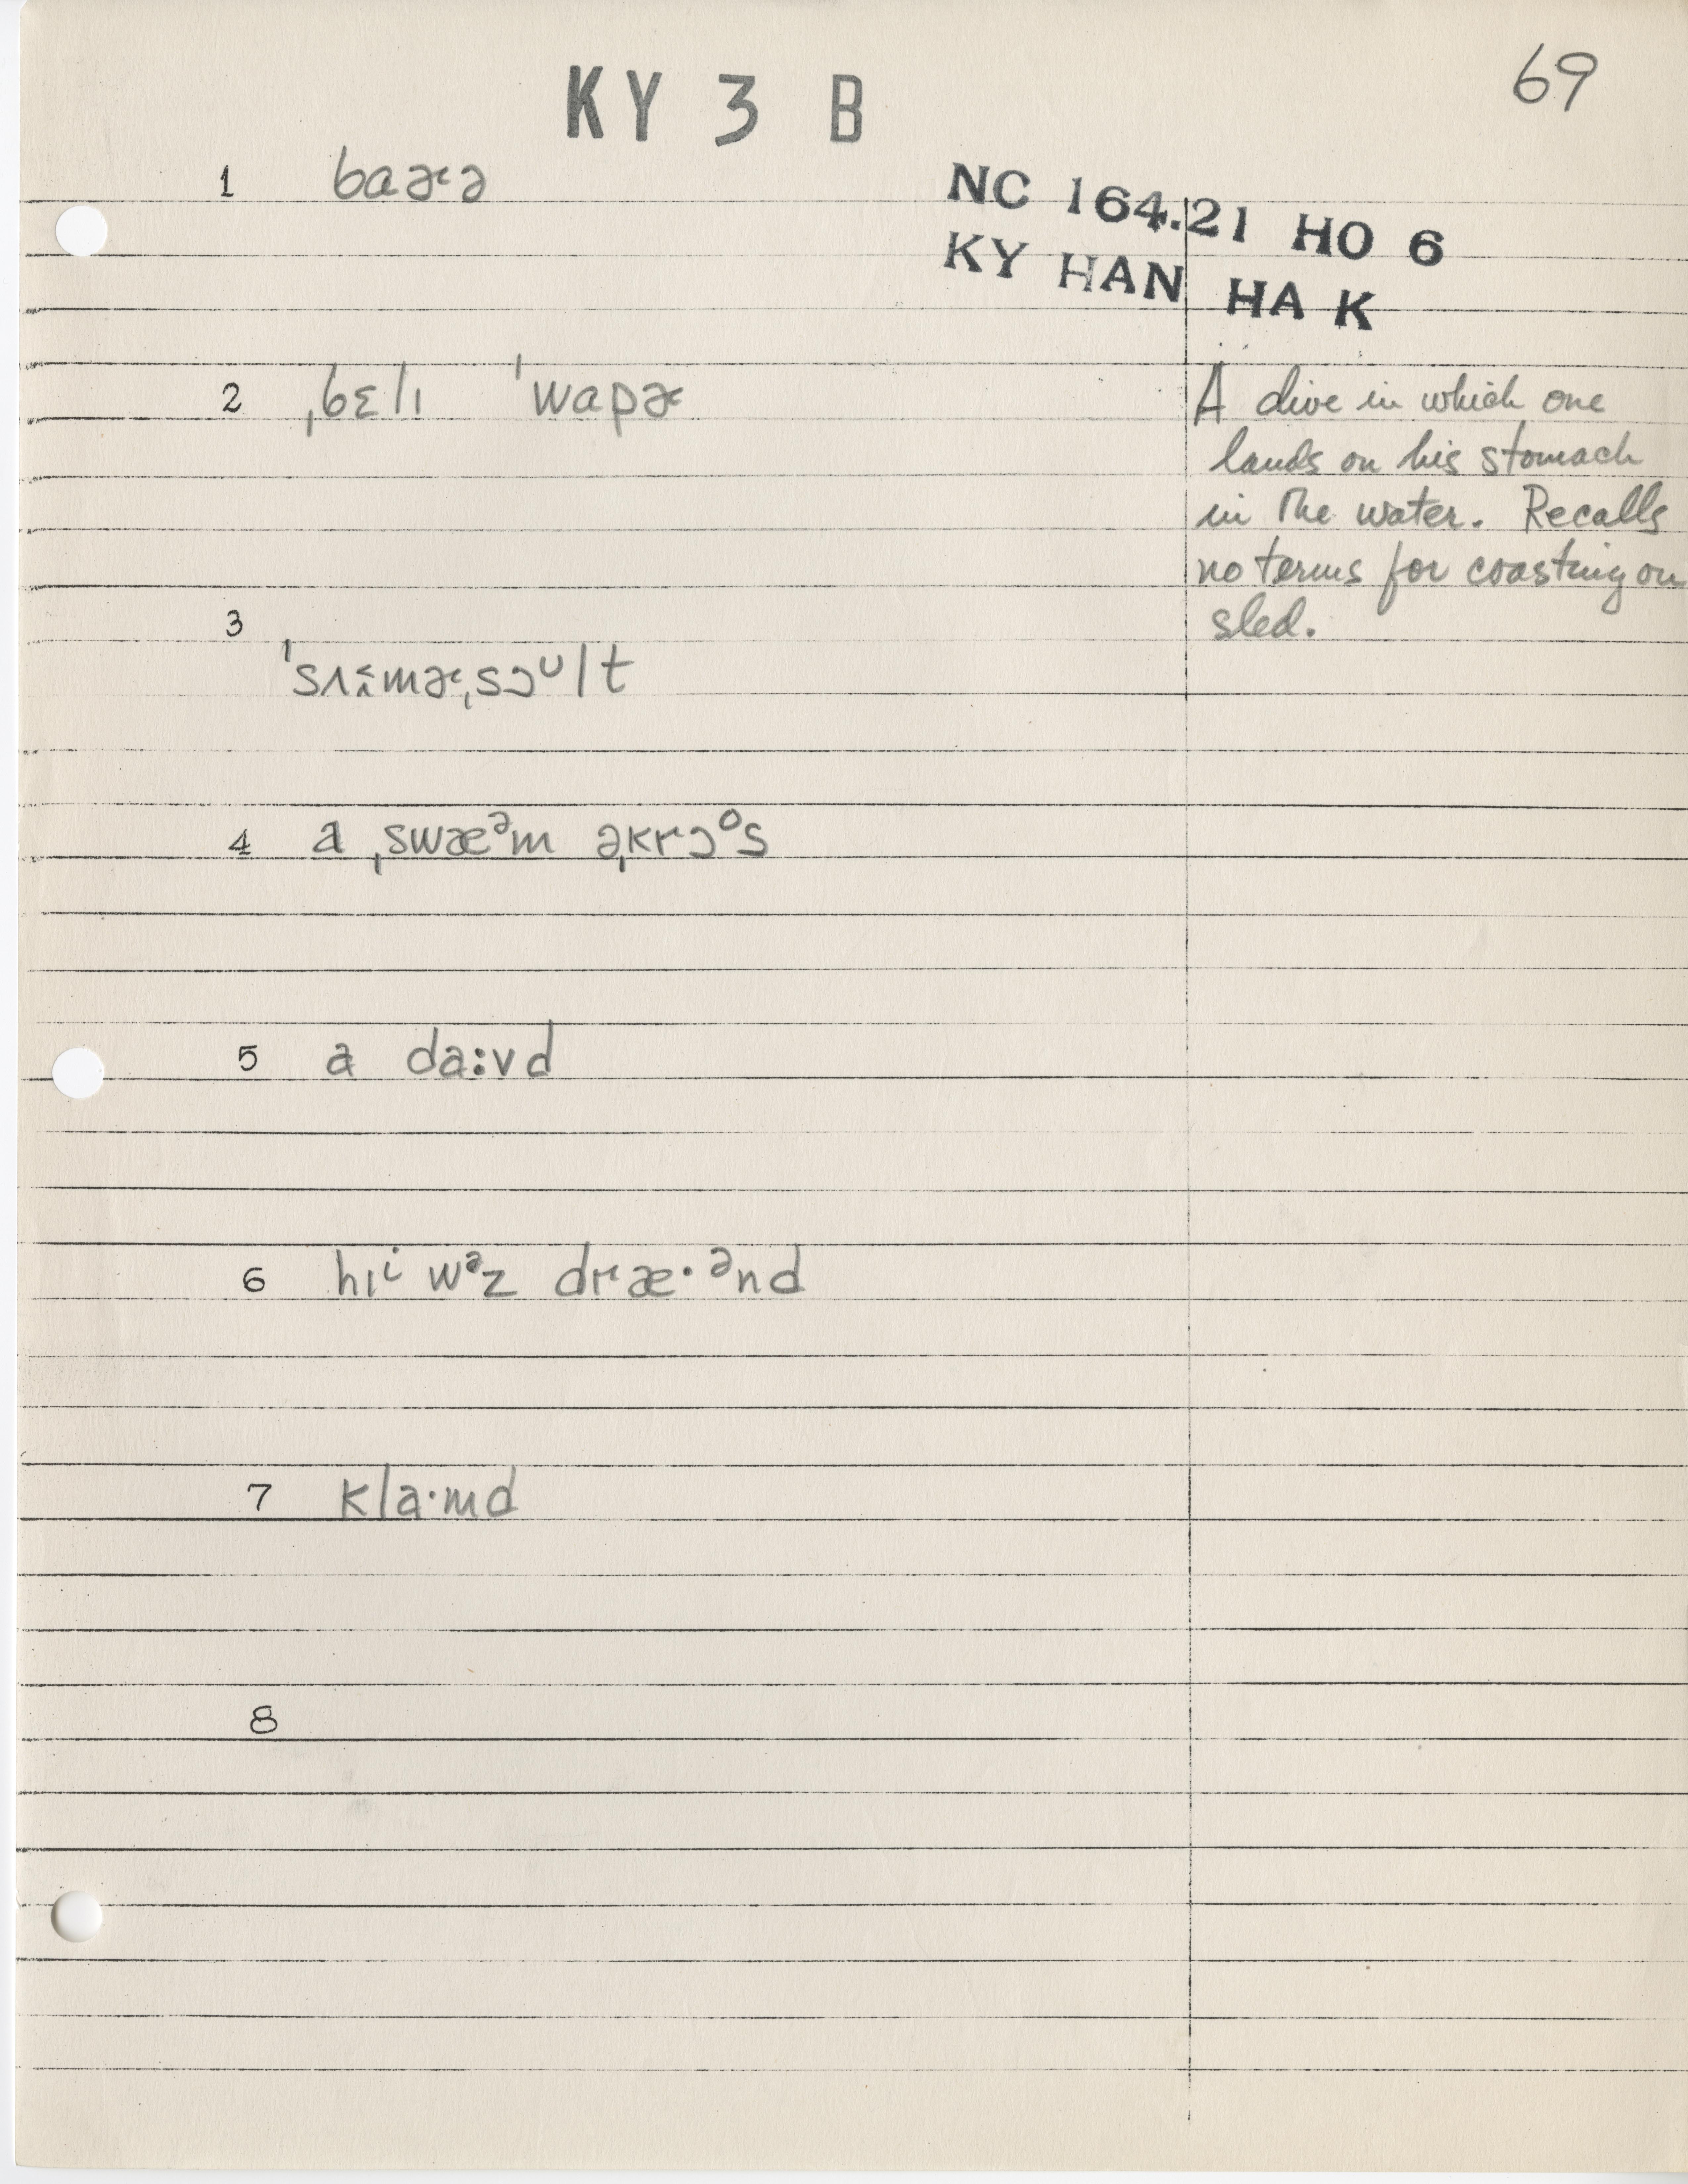 KY 3 B
69
1 baɚə
NC 164.21 HO 6
KY HAN HA K
2 ˌbɛlɪ ˈwapɚ
A dive in which one
lands on his stomach
in the water. Recalls
no terms for coasting on
sled.
3
ˈsʌmɚˌsɔᶷlt
4 a ˌswæᵊm əˌkrɔᵒs
5 a da:vd
6 hɪⁱ wᵊz dræ·ᵊnd
7 kla·md
8